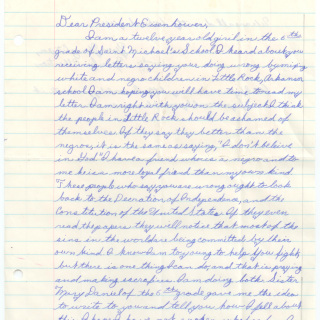 Dear President Eisenhower,
I am a twelve year old girl in the 6th
grade of Saint Michael's School. I heard about you
receiving letters saying your doing wrong by mixing
white and negro children in Little Rock, Arkansas
school. I am hoping you will have time to read my
letter. I am right with you on the subject. I think
the people in Little Rock should be ashamed of
themselves. If they say they better than the
negroes, it is the same as saying, "I don't believe
in God". I have a friend who is a negro and to
me he is more loyal friend than my own kind.
These people who say your wrong ought to look
back to the Decration of Independence, and the
Constitution of the United States. If they even
read the papers they will notice that most of the
sins in the world are being committed by their
own kind. I know I am to young to help you fight
but there is one thing I can do, and that is praying
and making sacrifices. I am doing both. Sister
Mary Daniel of the 6th grade gave me the idea
to write to you and tell you how I fell about